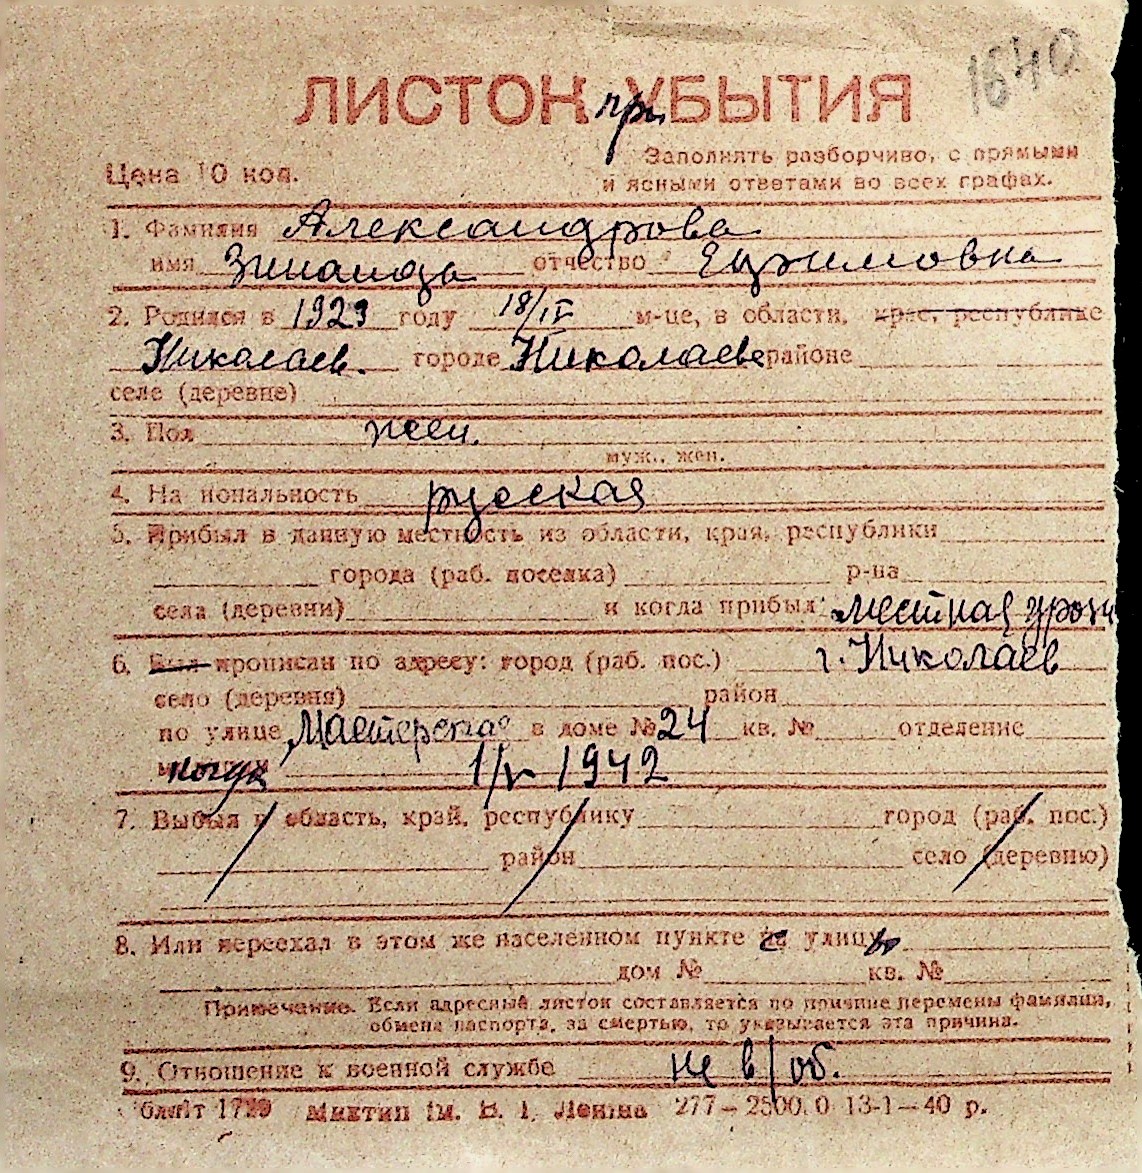 1640
ЛИСТОК при УБЫТИЯ
Цена 10 коп.
Заполнять разборчиво, с прямыми
и ясными ответами во всех графах.
1. Фамилия Александрова
имя Зинаида отчество Ефимовна
2. Родился в 1923 году 18/IV м-це, в области, крае, республике
Николаев. городе Николаеве районе
селе (деревне)
3. Пол жен.
муж., жен.
4. Национальность русская
5. Прибыл в данную местность из области, края, республики
города (раб. поселка) р-на
села (деревни) и когда прибыл местная урож
6. Был прописан по адресу: город (раб. пос.) г. Николаев
село (деревня) район
по улице Мастерская в доме № 24 кв. № отделение
когда 1/V 1942
7. Выбыл в область, край, республику город (раб. пос.)
район село (деревню)
8. Или переехал в этом же населенном пункте с улицы
дом № кв. №
Примечание. Если адресный листок составляется по причине перемены фамилии,
обмена паспорта, за смертью, то указывается эта причина.
9. Отношение к военной службе не в/об.
277—2500.0 13-1—40 р.